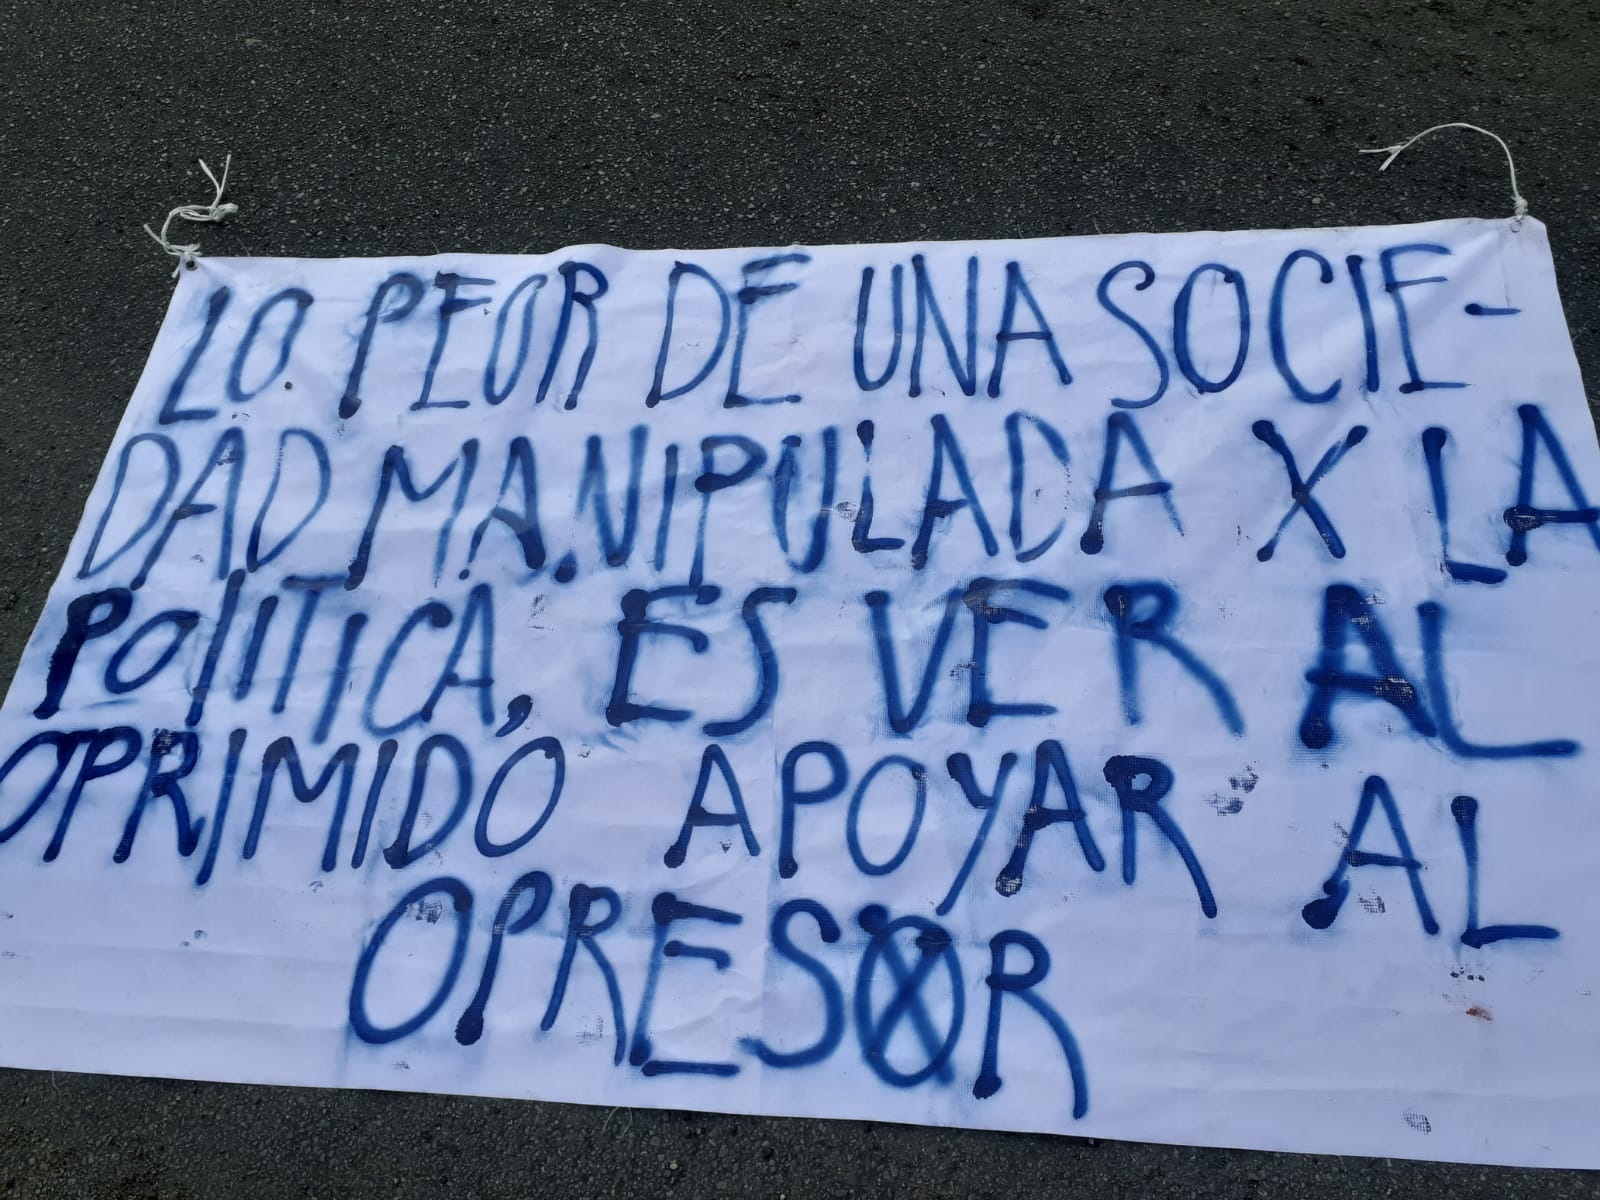 LO PEOR DE UNA SOCIE-
DAD MANIPULADA X LA
POlITICA, ES VER AL
OPRIMIDO APOYAR AL
OPRESOR